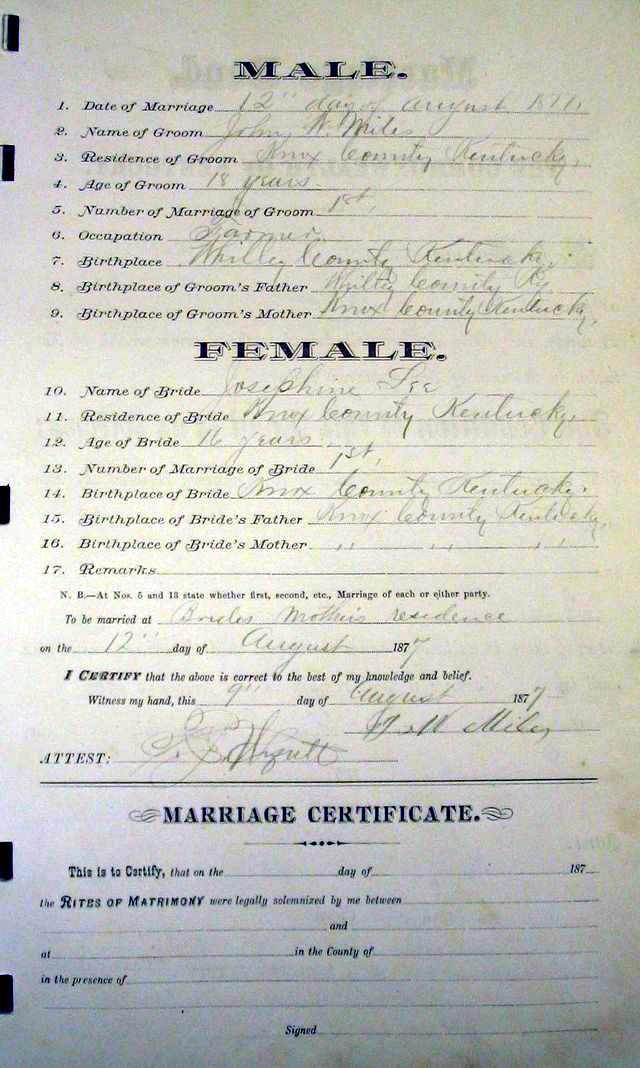 MALE.
1. Date of Marriage 12" day of August 1877
2. Name of Groom John W. Miles
3. Residence of Groom Knox County Kentucky,
4. Age of Groom 18 years.
5. Number of Marriage of Groom 1st,
6. Occupation Farmer,
7. Birthplace Whitley County Kentucky.
8. Birthplace of Groom's Father Whitley County Ky
9. Birthplace of Groom's Mother Knox County Kentucky,
FEMALE.
10. Name of Bride Josephine Lee
11. Residence of Bride Knox County Kentucky,
12. Age of Bride 16 years.
13. Number of Marriage of Bride 1st,
14. Birthplace of Bride Knox County Kentucky.
15. Birthplace of Bride's Father Knox County Kentucky,
16. Birthplace of Bride's Mother " " "
17. Remarks
N. B.—At Nos. 5 and 13 state whether first, second, etc., Marriage of each or either party.
To be married at Brides Mothers residence
on the 12" day of August 1877
I CERTIFY that the above is correct to the best of my knowledge and belief.
Witness my hand, this 9" day of August 1877
W Miles
ATTEST:
MARRIAGE CERTIFICATE.
This is to Certify, that on the day of 187
the RITES OF MATRIMONY were legally solemnized by me between
and
at in the County of
in the presence of
Signed